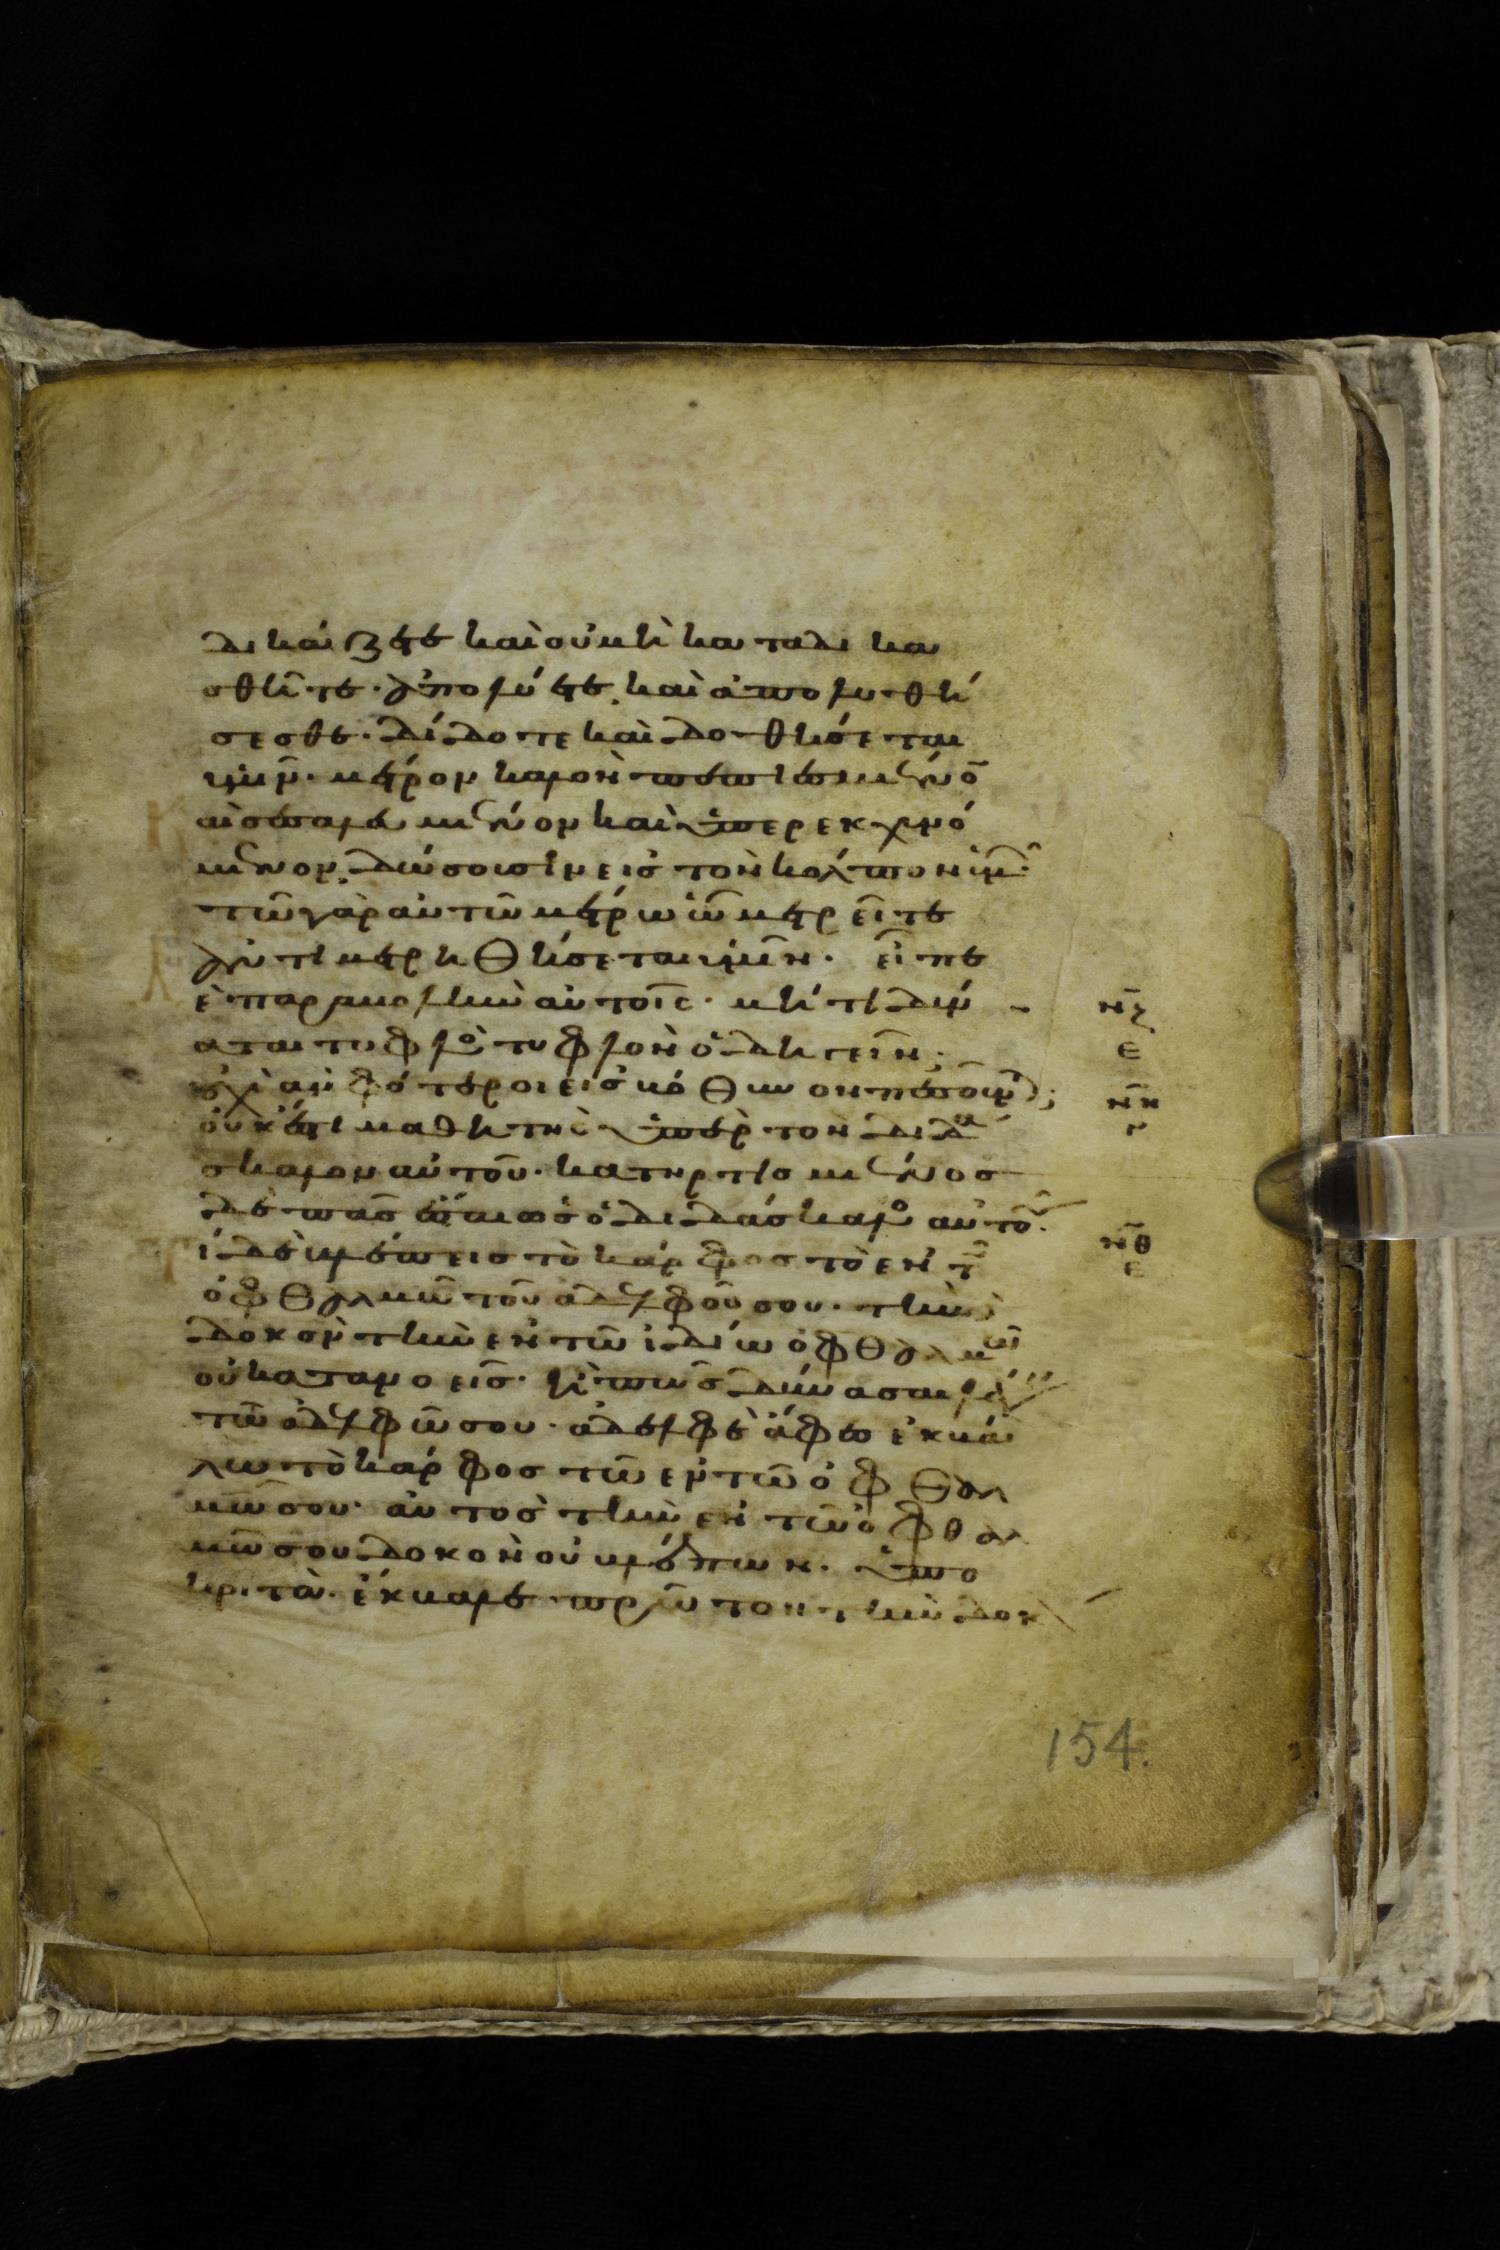 δικάζετε καὶ οὐ μὴ καταδικα
σθῆτε· ἀπολύετε, καὶ ἀπολυθή
σεσθε· δίδοτε καὶ δοθήσεται
ὑμῖν· μέτρον καλὸν πεπιεσμένο̅
καὶ σεσαλευμένον καὶ ὑπερεκχυνό
μενον, δώσουσιν εἰς τὸν κόλπον ὑμ̅·
τῶ γὰρ αὐτῶ μέτρω ὧ μετρεῖτε
ἀντιμετρηθήσεται ὑμῖν. εἶπε
παραβολὴν αὐτοῖς· μήτι δύν
αται τυφλὸ τυφλὸν ὁδηγεῖν;
οὐχὶ ἀμφότεροι εἰς βόθυνον πεσοῦν̅;
οὐκ ἔστι μαθητὴς ὑπὲρ τὸν διδά
σκαλον αὐτοῦ· κατηρτισμένος
δὲ πᾶς ἔσται ὡς ὁ διδάσκαλο αὐτοῦ·
τί δὲ βλέπεις τὸ κάρφος τὸ ἐν τῶ
ὀφθαλμῶ τοῦ ἀδελφοῦ σου· τὴν δὲ
δοκὸν τὴν ἐν τῶ ἰδίω ὀφθαλμῶ
οὐ κατανοεῖς· ἢ πῶς δύνασαι λέγειν
τῶ ἀδελφῶ σου· ἀδελφὲ ἄφες ἐκβά
λω τὸ κάρφος τῶ ἐν τῶ ὀφθαλ
μῶ σου· αὐτὸς τὴν ἐν τῶ ὀφθαλ
μῶ σου δοκὸν οὐ βλέπων. ὑπο
κριτὰ· ἔκβαλε πρῶτον τὴν δοκὸ
ν̅ζ
ε
ν̅η
γ
ν̅θ
ε
154.